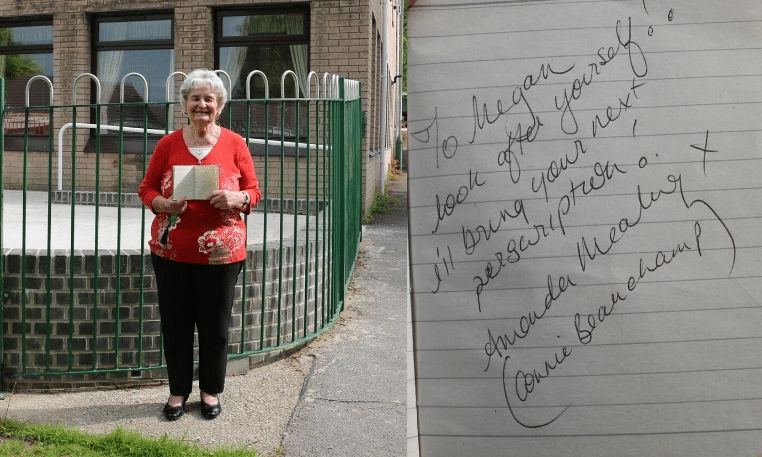 To Megan
look after yourself!!
i'll bring your next
perscription! x
Amanda Mealing
(Connie Beauchamp)